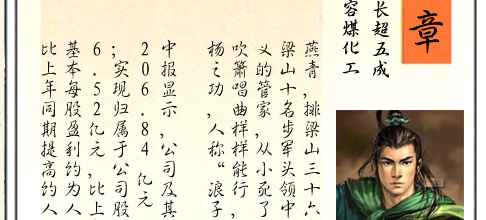 章
长超五成
容煤化工
燕青，排梁山三十六
梁山十名步军头领中
义的管家，从小死了
吹箫唱曲样样能行，
杨之功，人称“浪子
中报显示，公司及其
206.84亿元
；实现归属于公司股
6.52亿元，比上
基本每股盈利约为人
比上年同期提高约人